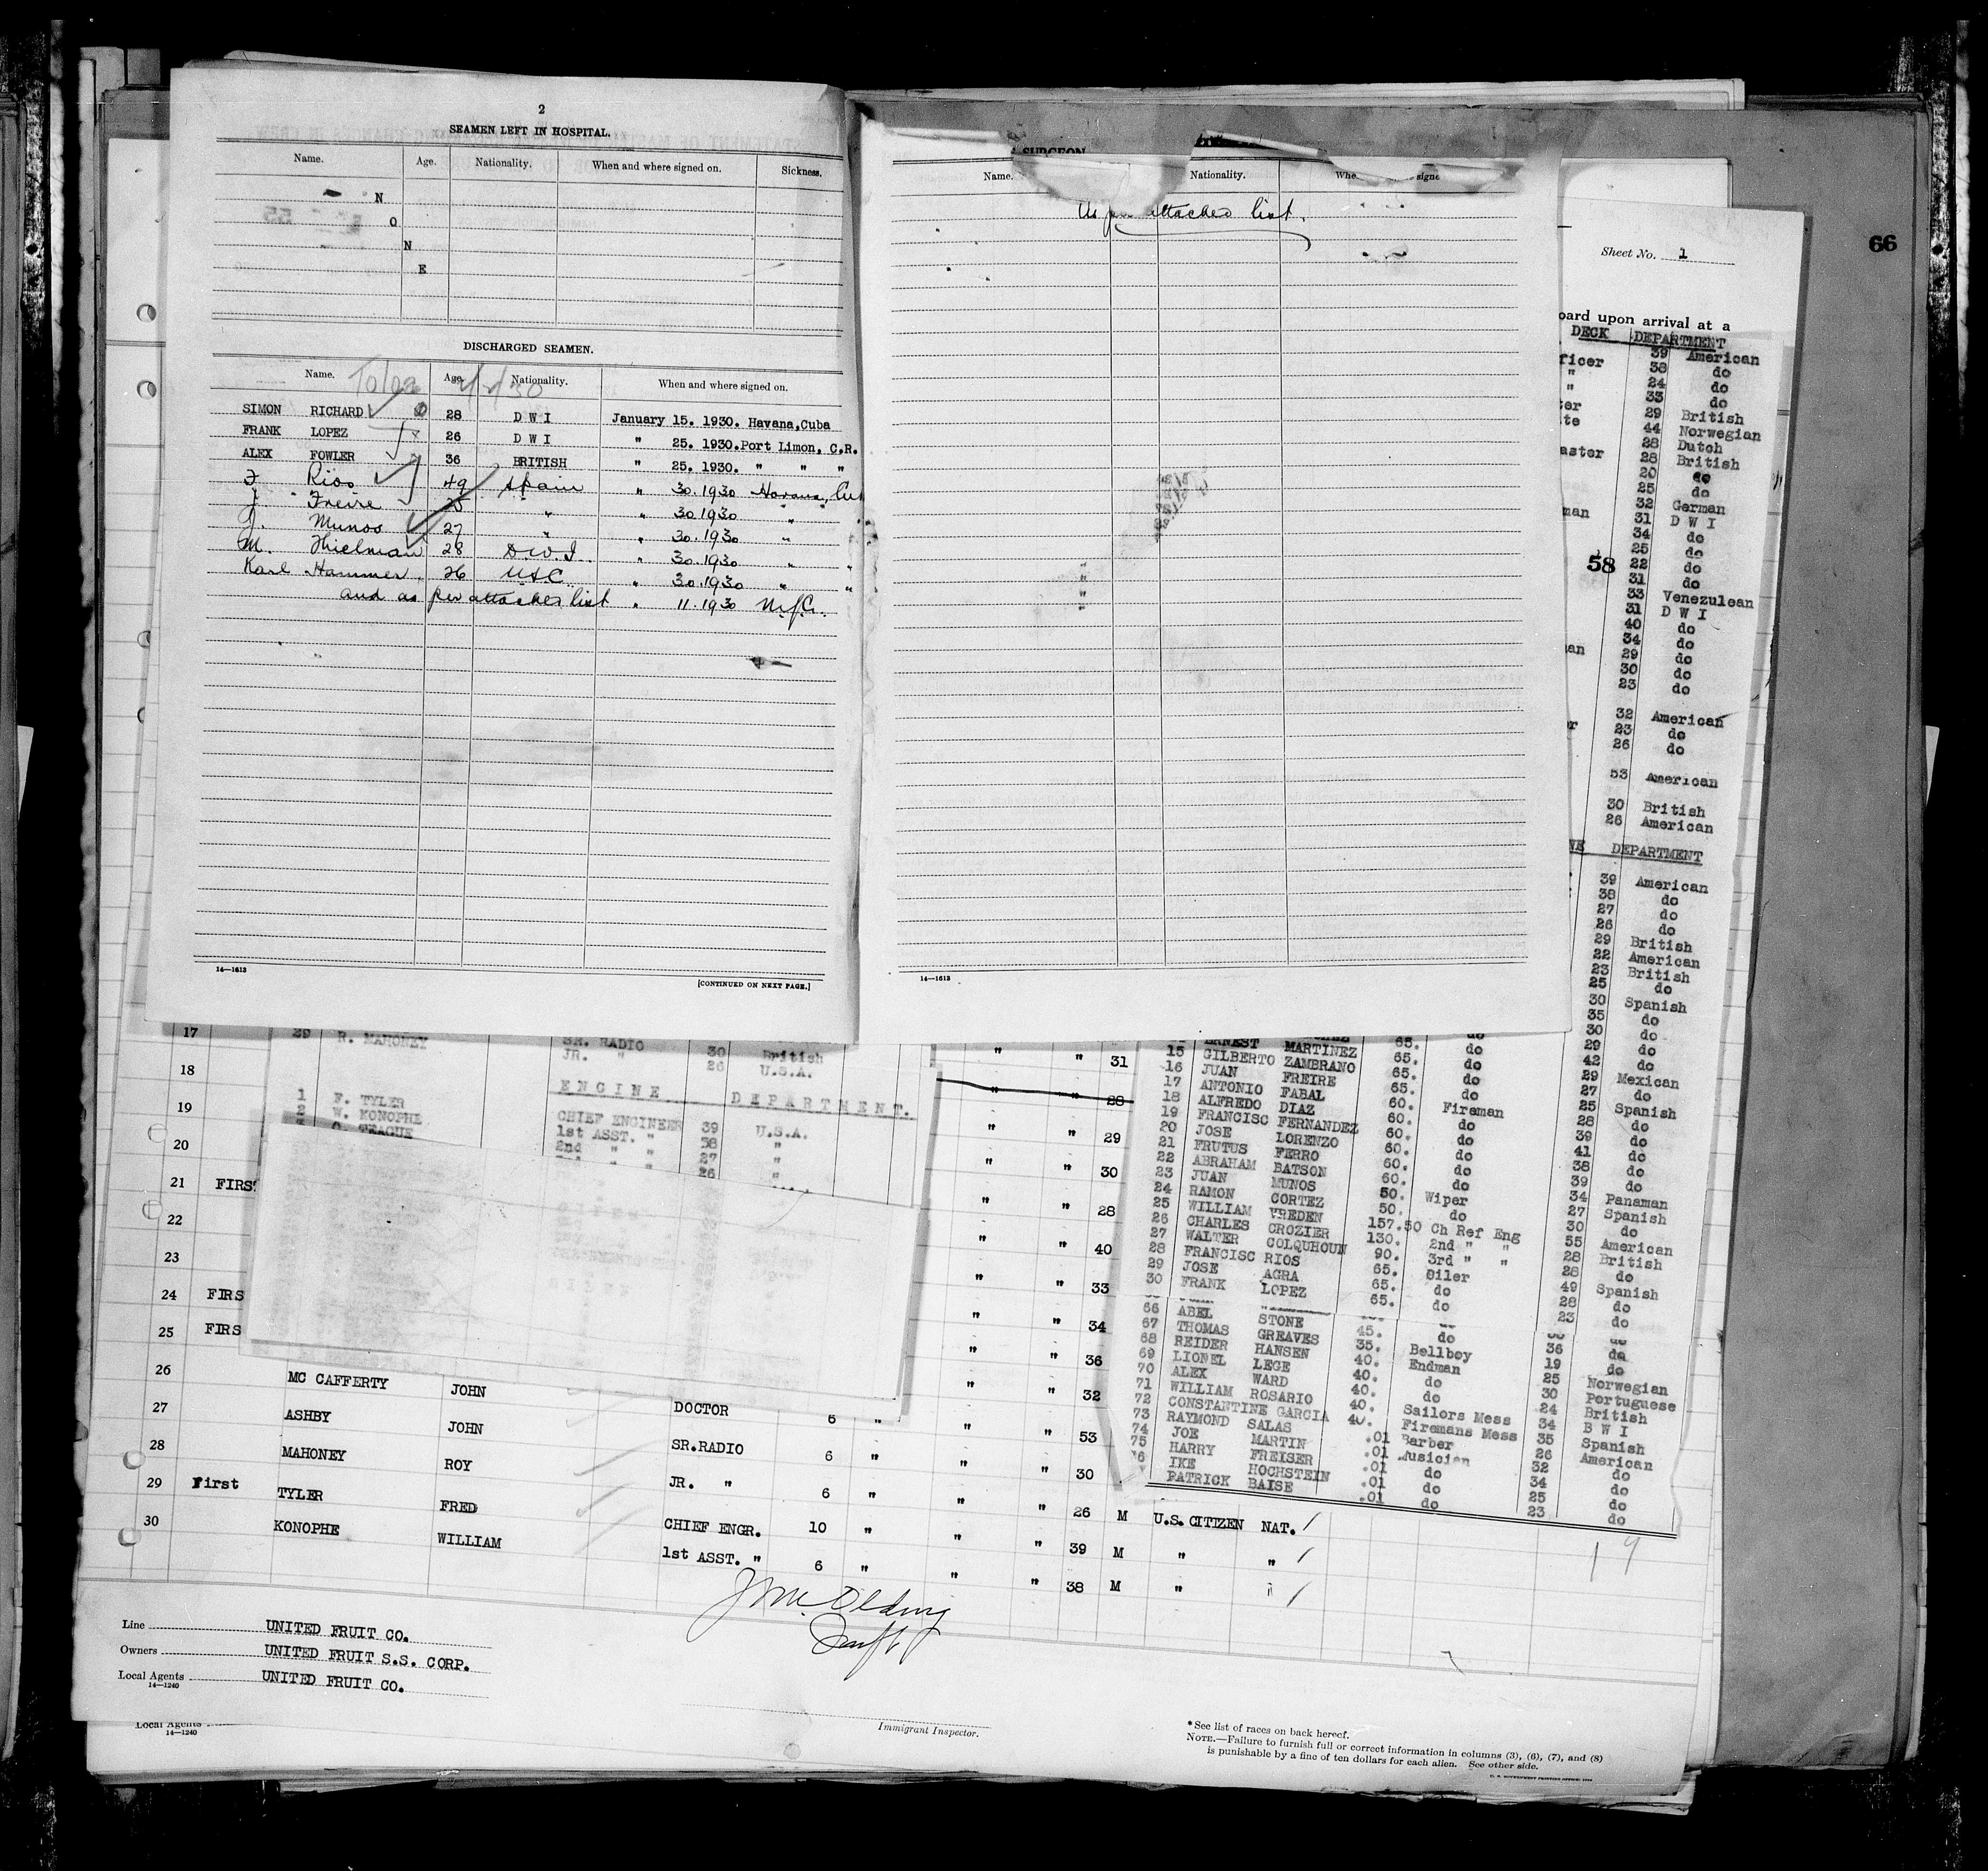 2
SEAMEN LEFT IN HOSPITAL.
Name. Age. Nationality. When and where signed on. Sickness.
N
O
N
E
DISCHARGED SEAMEN.
Name. Age. Nationality. When and where signed on.
SIMON RICHARD 28 D W I January 15. 1930. Havana,Cuba
FRANK LOPEZ 26 D W I " 25. 1930.Port Limon, C.R.
ALEX FOWLER 36 BRITISH " 25. 1930. " " "
F Rios 49 Spain " 30.1930 Havana, Cu
J. Freire " " 30.1930 " "
J. Munos 27 " " 30.1930 "
M. Thielman 28 D.W.I. " 30.1930 " "
Karl Hammer. 26 USC " 30.1930 " "
and as per attached list " 11.1930 N.Y.C.
14—1613
[CONTINUED ON NEXT PAGE.]
SURGEON
Name. Nationality. Whe signe
As per attached list.
14—1613
66
Sheet No. 1
oard upon arrival at a
DECK DEPARTMENT
ficer 39 American
" 38 do
" 24 do
33 do
ter 29 British
te 44 Norwegian
28 Dutch
aster 28 British
20 do
25 do
32 German
man 31 D W I
34 do
25 do
58
22 do
31 do
33 Venezulean
31 D W I
40 do
34 do
an 29 do
30 do
23 do
32 American
r 23 do
26 do
53 American
30 British
26 American
NE DEPARTMENT
39 American
38 do
27 do
26 do
29 British
22 American
23 British
25 do
30 Spanish
35 do
30 do
29 do
42 do
29 Mexican
27 do
25 Spanish
28 do
39 do
41 do
38 do
39 do
34 Panaman
27 Spanish
30 do
55 American
28 British
28 do
49 Spanish
28 do
23 do
ERNEST MARTINEZ 65. do
15 GILBERTO ZAMBRANO 65. do
16 JUAN FREIRE 65. do
17 ANTONIO FABAL 65. do
18 ALFREDO DIAZ 60. Fireman
19 FRANCISC FERNANDEZ 60. do
20 JOSE LORENZO 60. do
21 FRUTUS FERRO 60. do
22 ABRAHAM BATSON 60. do
23 JUAN MUNOS 60. do
24 RAMON CORTEZ 50. Wiper
25 WILLIAM VREDEN 50. do
26 CHARLES CROZIER 157.50 Ch Ref Eng
27 WALTER COLQUHOUN 130. 2nd " "
28 FRANCISC RIOS 90. 3rd " "
29 JOSE AGRA 65. Oiler
30 FRANK LOPEZ 65. do
65. do
66 ABEL STONE do do
67 THOMAS GREAVES 45. do 36 do
68 REIDER HANSEN 35. Bellboy 19 do
69 LIONEL LEGE 40. Endman 25 Norwegian
70 ALEX WARD 40. do 30 Portuguese
71 WILLIAM ROSARIO 40. do 24 British
72 CONSTANTINE GARCIA 40. Sailors Mess 34 B W I
73 RAYMOND SALAS 40. Firemans Mess 35 Spanish
74 JOE MARTIN .01 Barber 26 American
75 HARRY FREISER .01 Musician 32 do
6 IKE HOCHSTEIN .01 do 34 do
PATRICK BAISE .01 do 25 do
do 23 do
17
29 R. MAHONEY SR. RADIO 30 British
JR. " 26 U.S.A.
ENGINE DEPARTMENT.
1 F. TYLER CHIEF ENGINEER 39 U.S.A.
2 W. KONOPHE 1st ASST. " 58 "
TEAGUE 2nd " " 27 "
" " 26 "
" " 31
18
" " 28
19
" " 29
20
" " 30
21 FIRST
" " 28
22
" " 40
23
" " 33
24 FIRS
" " 34
25 FIRS
" " 36
26
" " 32
MC CAFFERTY JOHN DOCTOR 6 " " " 53
27
ASHBY JOHN SR.RADIO 6 " " " 30
28
MAHONEY ROY JR. " 6 " " " 26 M U.S. CITIZEN NAT. /
29 First
TYLER FRED CHIEF ENGR. 10 " " " 39 M " " /
30
KONOPHE WILLIAM 1st ASST. " 6 " " " 38 M " " /
19
Line UNITED FRUIT CO.
Owners UNITED FRUIT S.S. CORP.
Local Agents UNITED FRUIT CO.
14—1240
Local Agents
14—1240
Immigrant Inspector.
*See list of races on back hereof.
NOTE.—Failure to furnish full or correct information in columns (3), (6), (7), and (8)
is punishable by a fine of ten dollars for each alien. See other side.